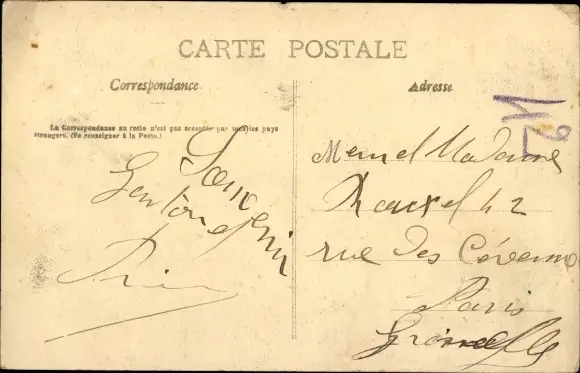 CARTE POSTALE
Correspondance
Adresse
La Correspondance au recto n'est pas acceptée par tous les pays
étrangers. (Se renseigner à la Poste.)
Souvenir
Gaston
Mr et Madame
42
rue des Cévennes
Paris
Grenelle